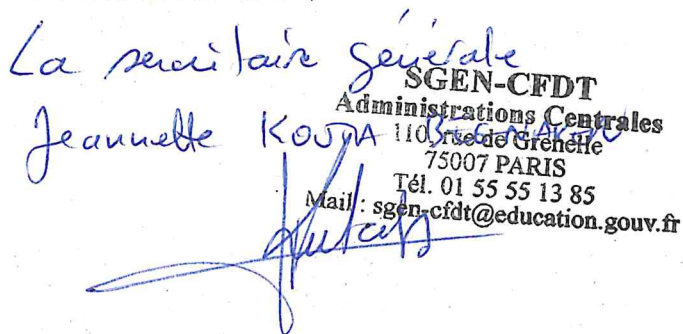 La secrétaire générale
Jeannette KOUTA
SGEN-CFDT
Administrations Centrales
110, rue de Grenelle
75007 PARIS
Tél. 01 55 55 13 85
Mail : sgen-cfdt@education.gouv.fr